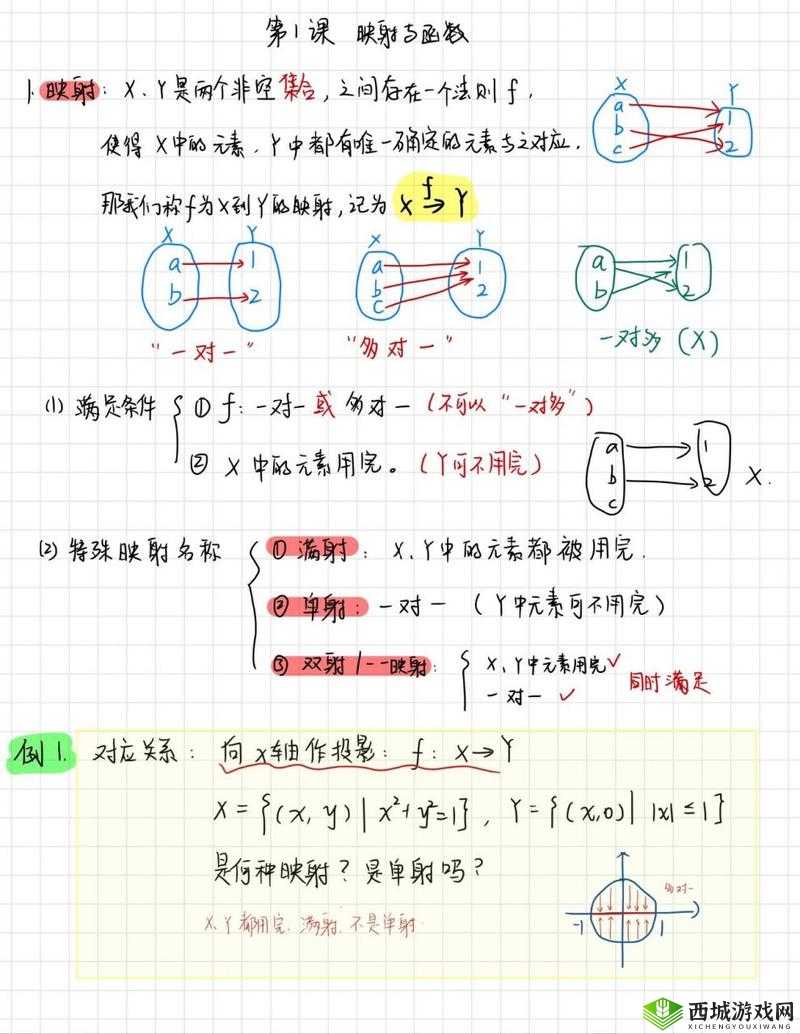 第1课 映射与函数
1. 映射: X、Y是两个非空集合,之间存在一个法则f,
使得X中的元素,Y中都有唯一确定的元素与之对应,
那我们称f为X到Y的映射,记为 X f→ Y
X Y
a 1
b 2
c
X Y
a 1
b 2
X Y
a 1
b 2
c
a 1
b 2
"一对一"
"多对一"
一对多 (X)
(1) 满足条件 { ① f: 一对一或多对一 (不可以"一对多")
② X中的元素用完。(Y可不用完)
a 1
b 2
c
X.
(2) 特殊映射名称 { ① 满射: X、Y中的元素都被用完.
② 单射: 一对一 (Y中元素可不用完)
③ 双射/一一映射: { X、Y中元素用完✓
一对一 ✓
同时满足
例1. 对应关系: 向x轴作投影: f: X→Y
X={(x, y)| x²+y²=1}, Y={(x,0)| |x|≤1}
是何种映射?是单射吗?
X、Y都用完、满射、不是单射.
多对一
-1 1
西城游戏网
XICHENGYOUXIWANG